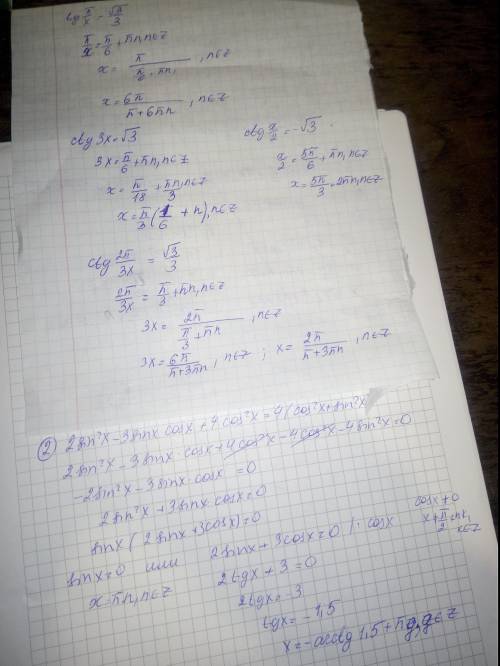 tg π/x = √3/3
π/x = π/6 + πn, n∈Z
x = π/(π/6 + πn), n∈Z
x = 6π/(π+6πn), n∈Z
ctg 3x = √3
3x = π/6 + πn, n∈Z
x = π/18 + πn/3, n∈Z
x = π/3 (1/6 + n), n∈Z
ctg x/2 = -√3
x/2 = 5π/6 + πn, n∈Z
x = 5π/3 + 2πn, n∈Z
ctg 2π/3x = √3/3
2π/3x = π/3 + πn, n∈Z
3x = 2π/(π/3 + πn), n∈Z
3x = 6π/(π+3πn), n∈Z ; x = 2π/(π+3πn), n∈Z
② 2sin²x - 3sinx cosx + 4cos²x = 4(cos²x + sin²x)
2sin²x - 3sinx · cosx + 4cos²x - 4cos²x - 4sin²x = 0
-2sin²x - 3sinx · cosx = 0
2sin²x + 3sinx · cosx = 0
sinx (2sinx + 3cosx) = 0
sinx = 0 или 2sinx + 3cosx = 0 | : cosx
x = πn, n∈Z
cosx ≠ 0
x ≠ π/2 + πk, k∈Z
2tgx + 3 = 0
2tgx = -3
tgx = -1,5
x = -arctg 1,5 + πg, g∈Z